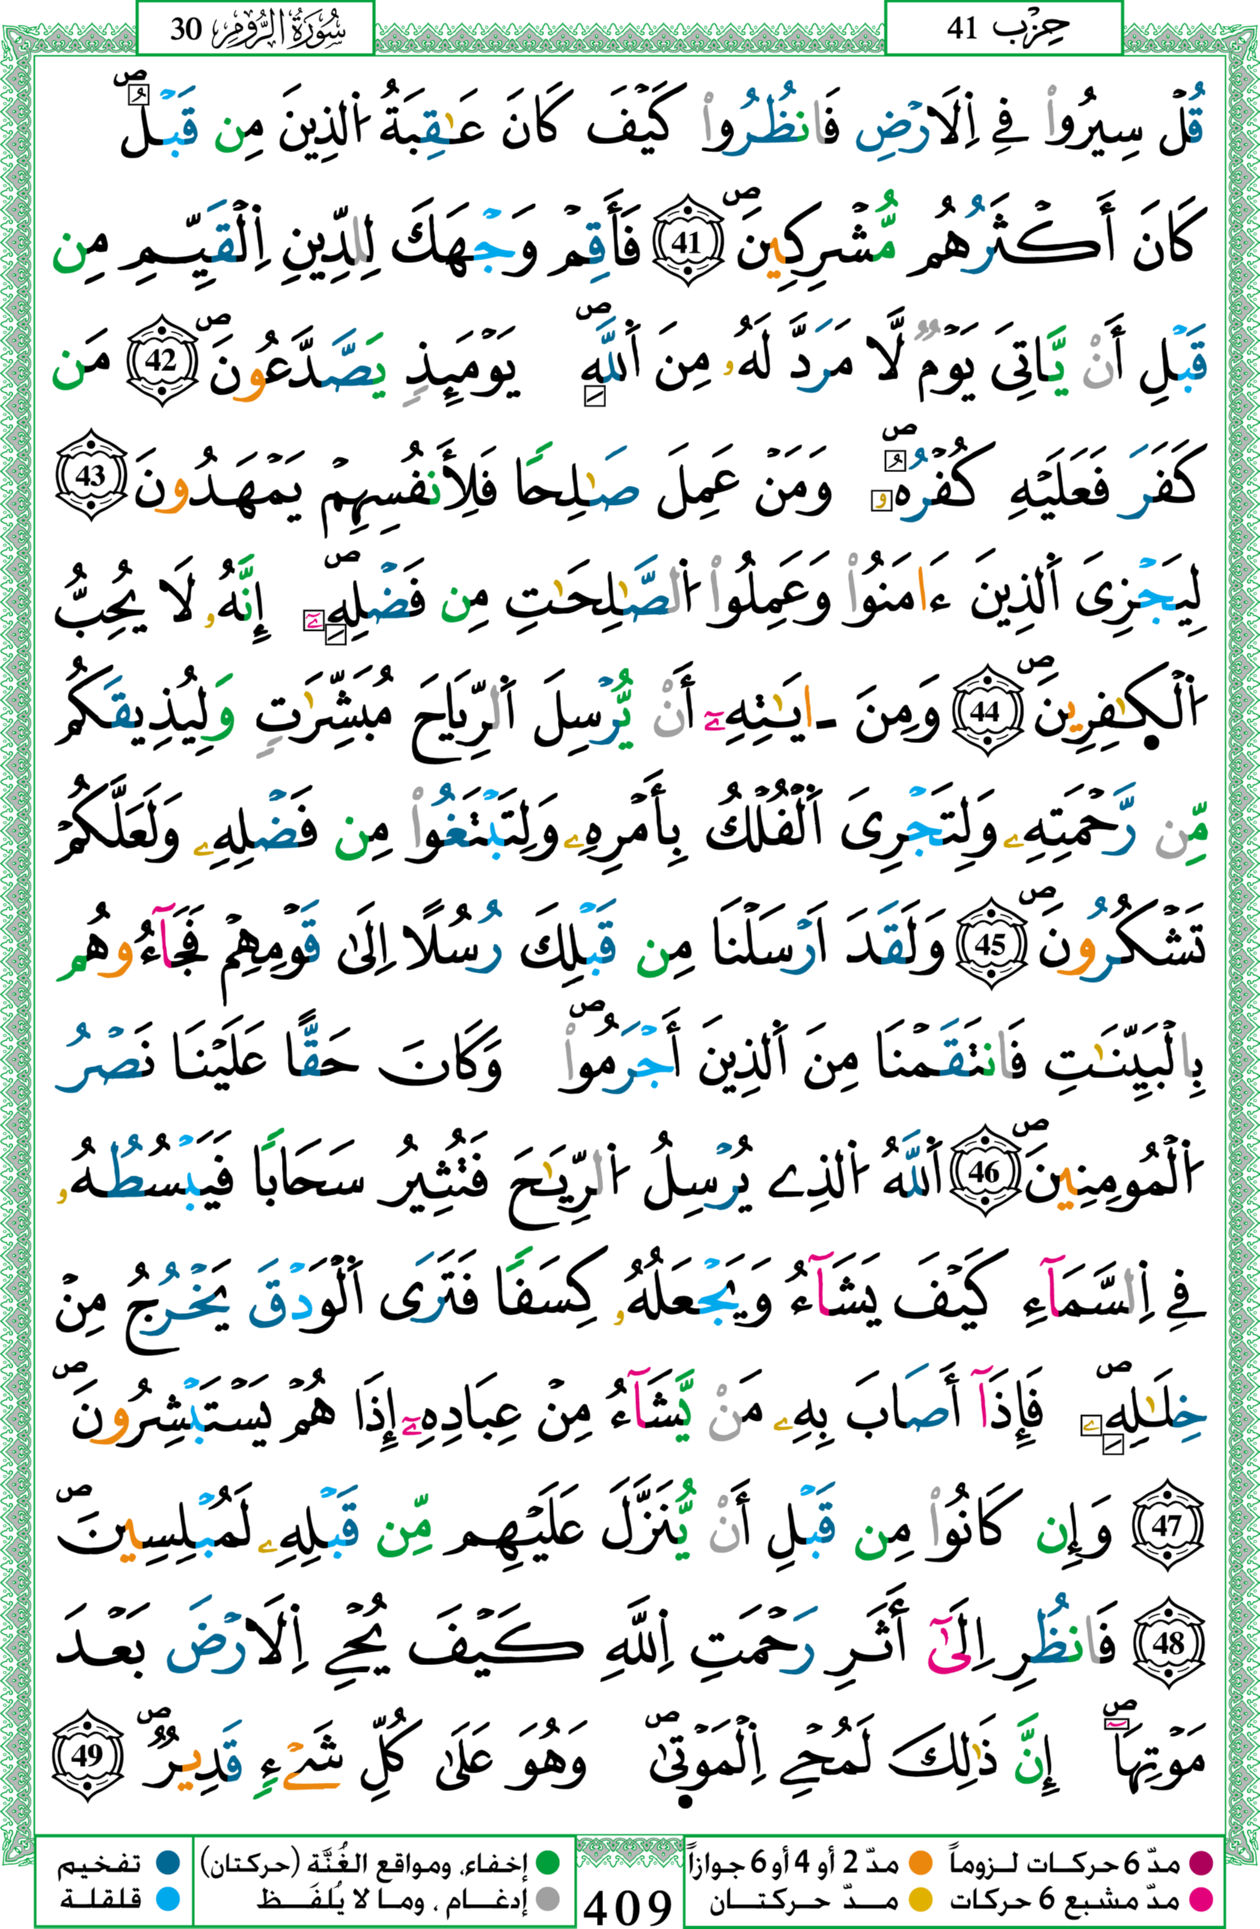 حِزْب 41
سُورَةُ الرُّومِ 30
قُلْ سِيرُواْ فِے اِ۬لَارْضِ فَانظُرُواْ كَيْفَ كَانَ عَٰقِبَةُ اُ۬لذِينَ مِن قَبْلُۖ
كَانَ أَكْثَرُهُم مُّشْرِكِينَۖ 41 فَأَقِمْ وَجْهَكَ لِلدِّينِ اِ۬لْقَيِّمِ مِن
قَبْلِ أَنْ يَّاتِىَ يَوْمٌ لَّا مَرَدَّ لَهُۥ مِنَ اَ۬للَّهِۖ يَوْمَئِذٍ يَصَّدَّعُونَۖ 42 مَن
كَفَرَ فَعَلَيْهِ كُفْرُهُۥۖ وَمَنْ عَمِلَ صَٰلِحًا فَلِأَنفُسِهِمْ يَمْهَدُونَ 43
لِيَجْزِىَ اَ۬لذِينَ ءَامَنُواْ وَعَمِلُواْ اُ۬لصَّٰلِحَٰتِ مِن فَضْلِهِۦٓۖ إِنَّهُۥ لَا يُحِبُّ
اُ۬لْكٰ۪فِرِينَۖ 44 وَمِنَ ـ ايَٰتِهِۦٓ أَنْ يُّرْسِلَ اَ۬لرِّيَاحَ مُبَشِّرَٰتٍ وَلِيُذِيقَكُم
مِّن رَّحْمَتِهِۦ وَلِتَجْرِىَ اَ۬لْفُلْكُ بِأَمْرِهِۦ وَلِتَبْتَغُواْ مِن فَضْلِهِۦ وَلَعَلَّكُمْ
تَشْكُرُونَۖ 45 وَلَقَدَ اَرْسَلْنَا مِن قَبْلِكَ رُسُلًا اِلَىٰ قَوْمِهِمْ فَجَآءُوهُم
بِالْبَيِّنَٰتِ فَانتَقَمْنَا مِنَ اَ۬لذِينَ أَجْرَمُواْۖ وَكَانَ حَقًّا عَلَيْنَا نَصْرُ
اُ۬لْمُومِنِينَۖ 46 اَ۬للَّهُ اُ۬لذِے يُرْسِلُ اُ۬لرِّيَٰحَ فَتُثِيرُ سَحَابًا فَيَبْسُطُهُۥ
فِے اِ۬لسَّمَآءِ كَيْفَ يَشَآءُ وَيَجْعَلُهُۥ كِسَفًا فَتَرَى اَ۬لْوَدْقَ يَخْرُجُ مِنْ
خِلَٰلِهِۦۖ فَإِذَآ أَصَابَ بِهِۦ مَنْ يَّشَآءُ مِنْ عِبَادِهِۦٓ إِذَا هُمْ يَسْتَبْشِرُونَۖ
47 وَإِن كَانُواْ مِن قَبْلِ أَنْ يُّنَزَّلَ عَلَيْهِم مِّن قَبْلِهِۦ لَمُبْلِسِينَۖ
48 فَانظُرِ اِلَىٰٓ أَثَرِ رَحْمَتِ اِ۬للَّهِ كَيْفَ يُحْىِ اِ۬لَارْضَ بَعْدَ
مَوْتِهَآۖ إِنَّ ذَٰلِكَ لَمُحْىِ اِ۬لْمَوْت۪ىٰۖ وَهُوَ عَلَىٰ كُلِّ شَےْءٍ قَدِيرٌۖ 49
مدّ 6 حركات لـزوماً مدّ 2 أو 4 أو 6 جوازاً
مدّ مشبع 6 حركات مـــدّ حـركتــان
409
إخفاء، ومواقع الغُنَّة (حركتان) تفخيم
إدغــام ، ومـا لا يُلفَــظ قلقلة